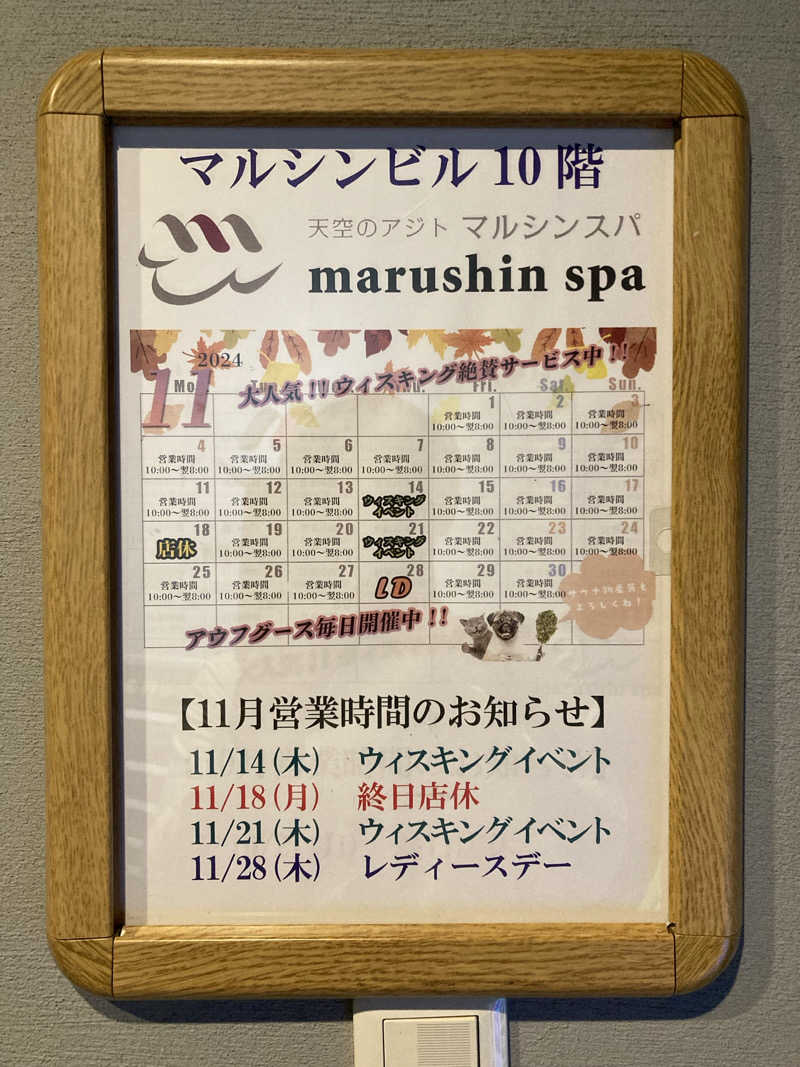 マルシンビル10階
天空のアジト マルシンスパ
marushin spa
2024
11
大人気!!ウィスキング絶賛サービス中!!
Mo Tu Fri. Sat. Sun.
1 2 3
営業時間 営業時間 営業時間
10:00～翌8:00 10:00～翌8:00 10:00～翌8:00
4 5 6 7 8 9 10
営業時間 営業時間 営業時間 営業時間 営業時間 営業時間 営業時間
10:00～翌8:00 10:00～翌8:00 10:00～翌8:00 10:00～翌8:00 10:00～翌8:00 10:00～翌8:00 10:00～翌8:00
11 12 13 14 15 16 17
営業時間 営業時間 営業時間 ウィスキング 営業時間 営業時間 営業時間
10:00～翌8:00 10:00～翌8:00 10:00～翌8:00 イベント 10:00～翌8:00 10:00～翌8:00 10:00～翌8:00
18 19 20 21 22 23 24
店休 営業時間 営業時間 ウィスキング 営業時間 営業時間 営業時間
10:00～翌8:00 10:00～翌8:00 イベント 10:00～翌8:00 10:00～翌8:00 10:00～翌8:00
25 26 27 28 29 30
営業時間 営業時間 営業時間 LD 営業時間 営業時間
10:00～翌8:00 10:00～翌8:00 10:00～翌8:00 10:00～翌8:00 10:00～翌8:00
サウナ物産展も
よろしくね!
アウフグース毎日開催中!!
【11月営業時間のお知らせ】
11/14(木) ウィスキングイベント
11/18(月) 終日店休
11/21(木) ウィスキングイベント
11/28(木) レディースデー